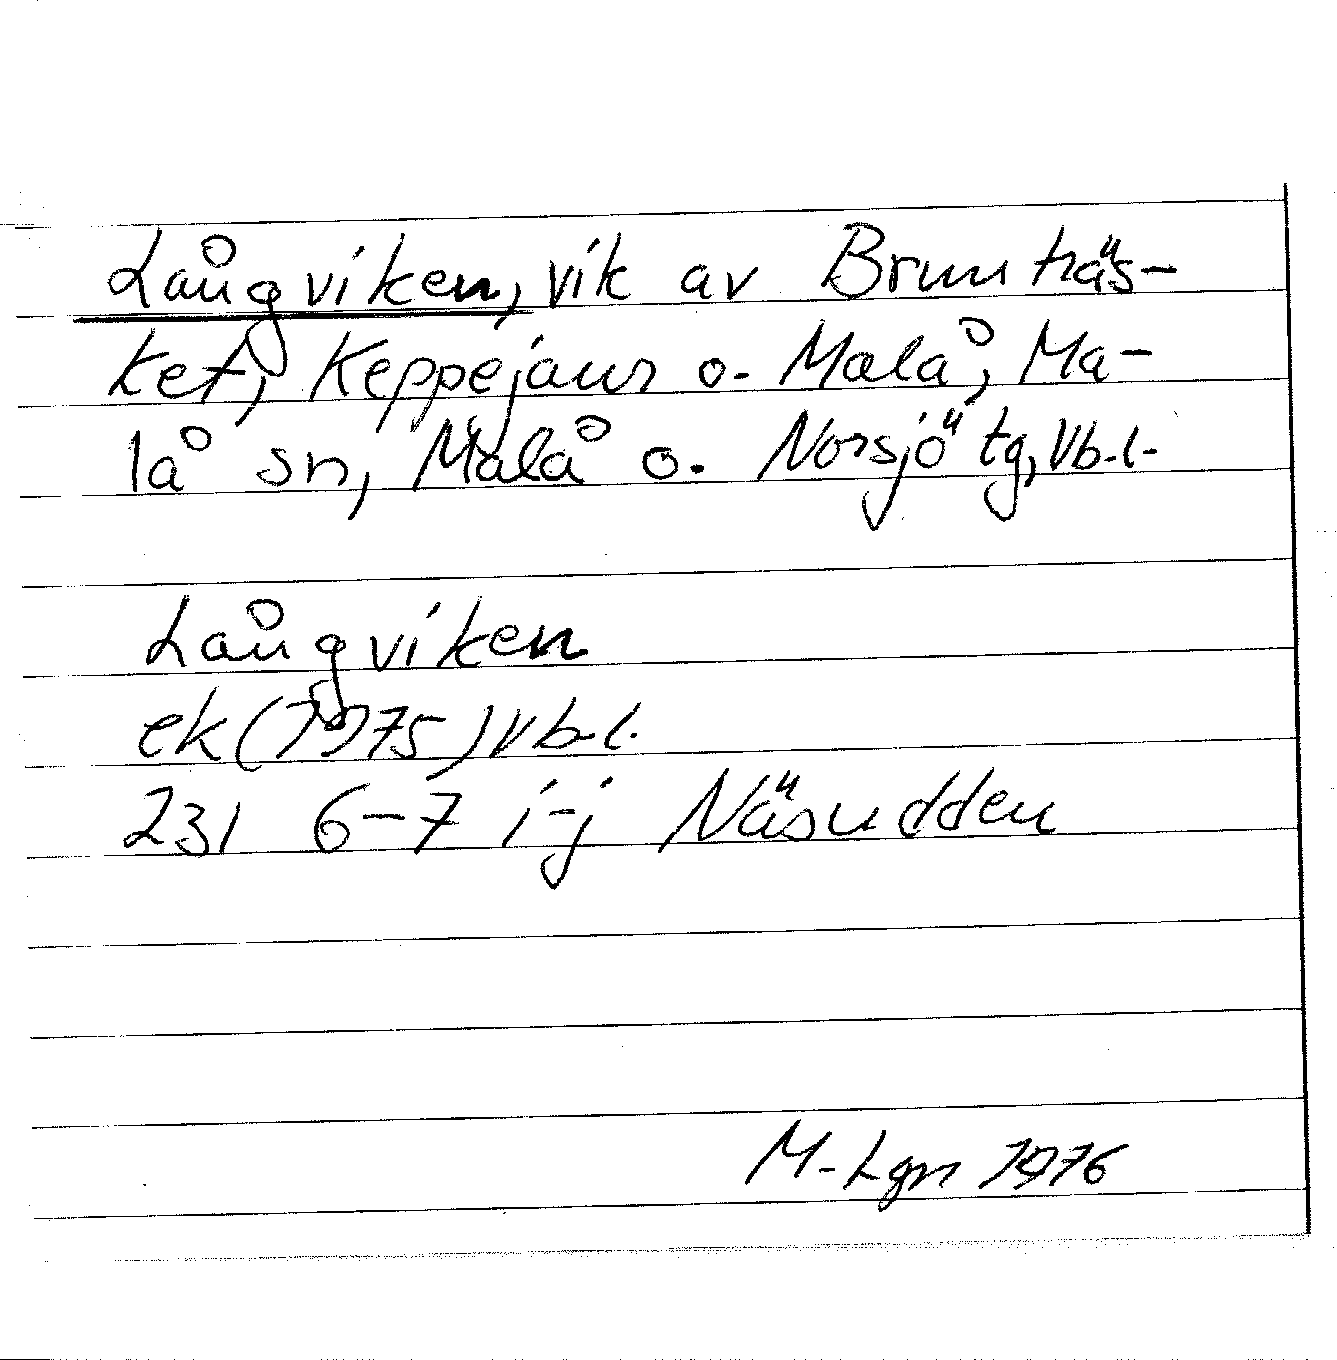 Långviken, vik av Brunträs-
ket, Keppejaur o. Malå, Ma-
lå sn, Malå o. Norsjö tg, Vb.l.
Långviken
ek (1975) Vb.l.
231 6-7 i-j Näsudden
M-Lgn 1976